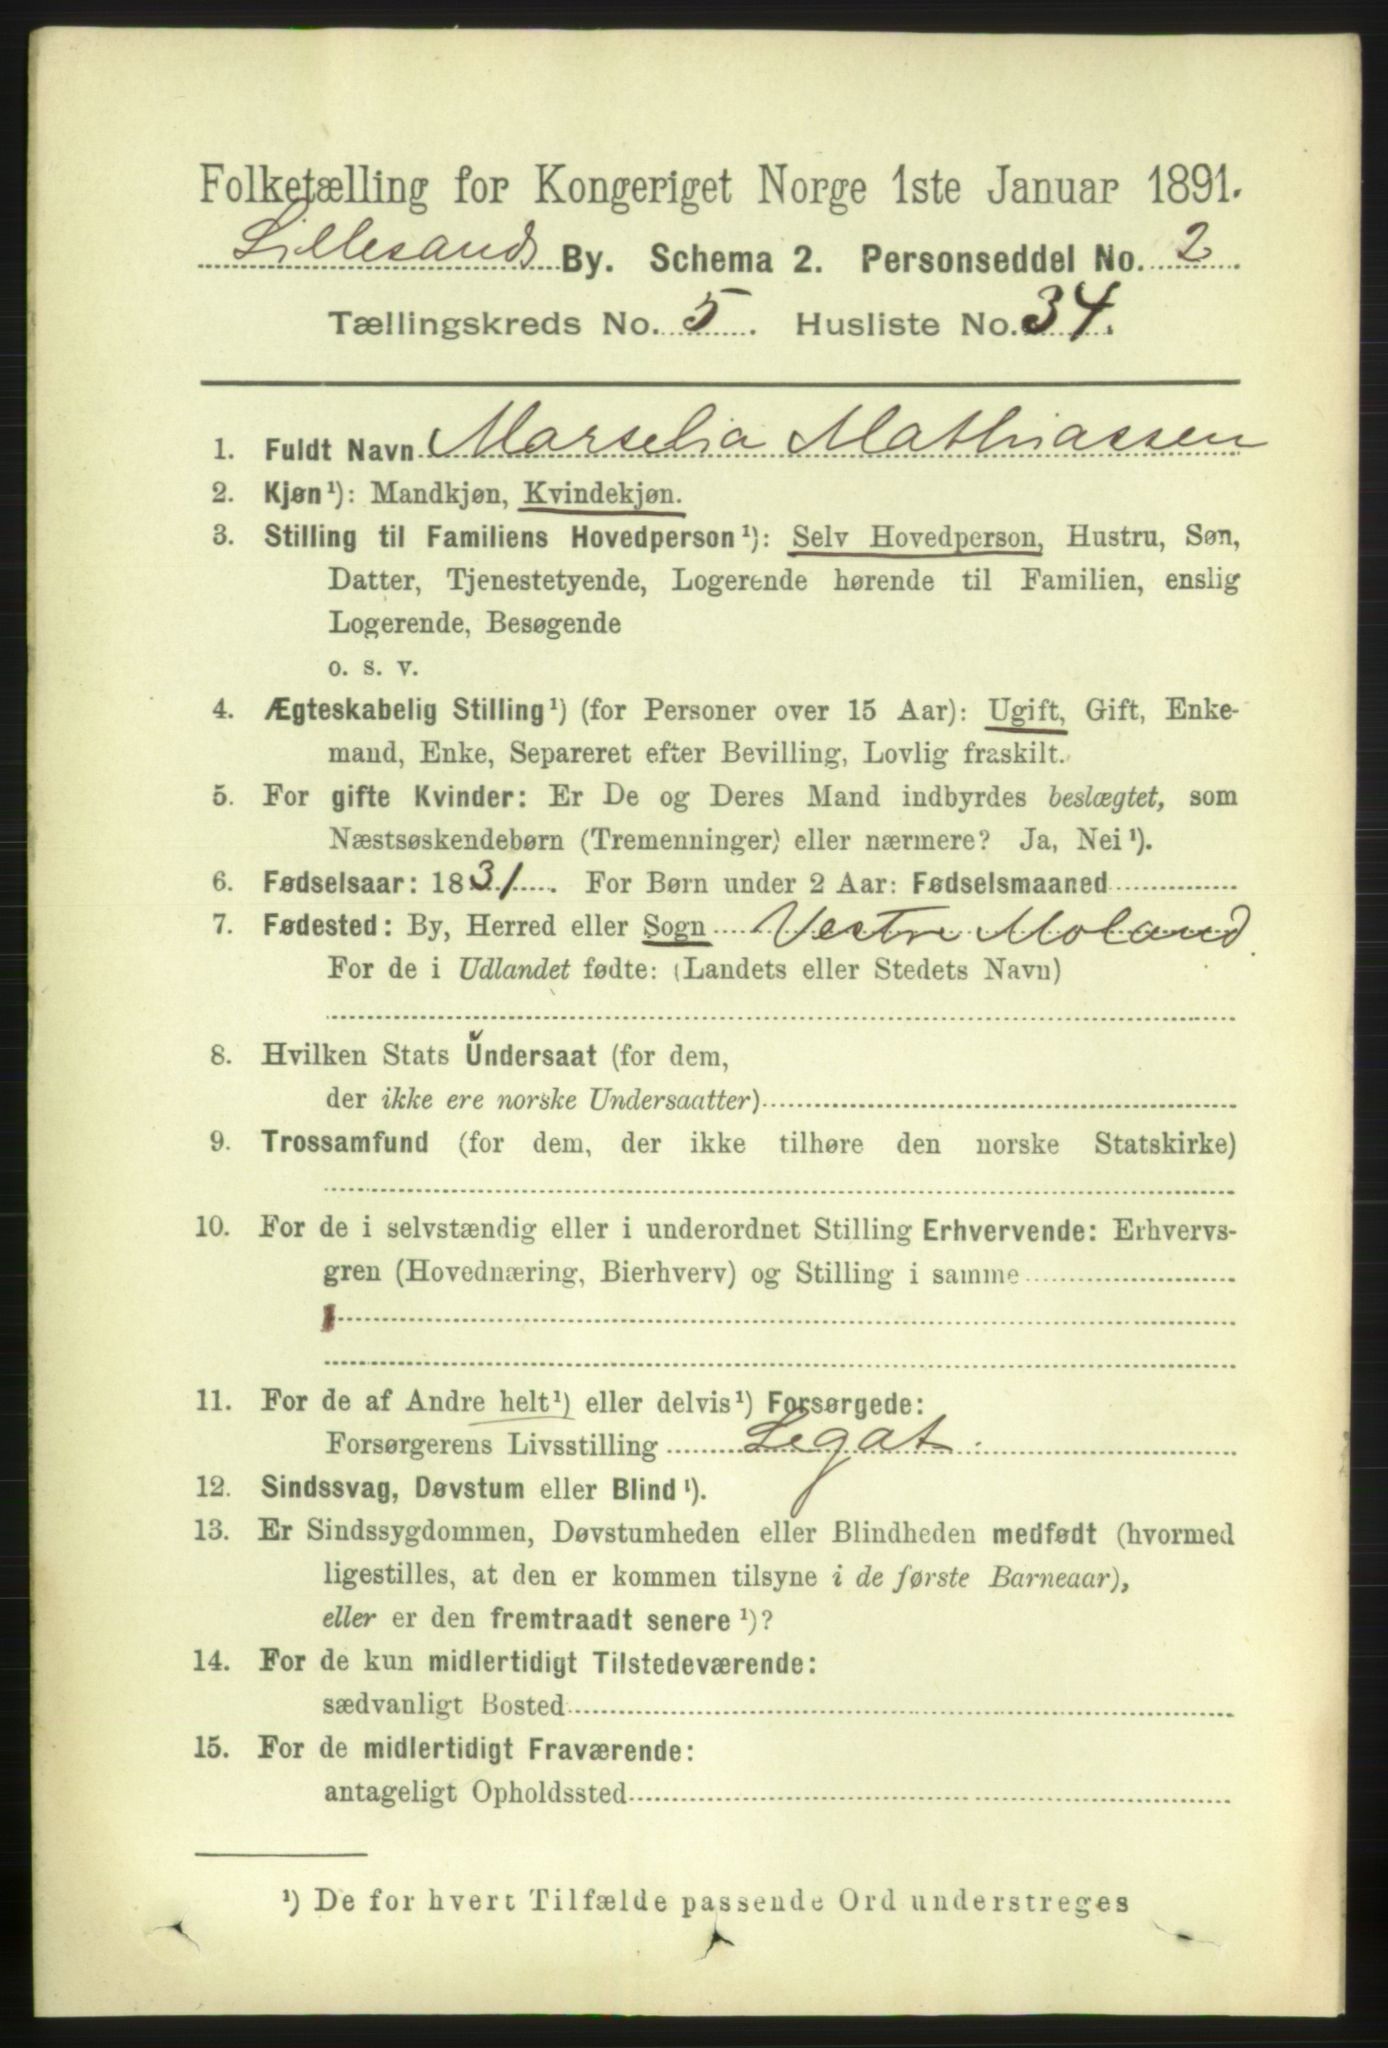 Folketælling for Kongeriget Norge 1ste Januar 1891.
Lillesands By. Schema 2. Personseddel No. 2
Tællingskreds No. 5. Husliste No. 34.
1. Fuldt Navn Marselia Mathiassen
2. Kjøn¹): Mandkjøn, Kvindekjøn.
3. Stilling til Familiens Hovedperson¹): Selv Hovedperson, Hustru, Søn,
Datter, Tjenestetyende, Logerende hørende til Familien, enslig
Logerende, Besøgende
o. s. v.
4. Ægteskabelig Stilling¹) (for Personer over 15 Aar): Ugift, Gift, Enke-
mand, Enke, Separeret efter Bevilling, Lovlig fraskilt.
5. For gifte Kvinder: Er De og Deres Mand indbyrdes beslægtet, som
Næstsøskendebørn (Tremenninger) eller nærmere? Ja, Nei¹).
6. Fødselsaar: 1831. For Børn under 2 Aar: Fødselsmaaned
7. Fødested: By, Herred eller Sogn Vestre Moland
For de i Udlandet fødte: (Landets eller Stedets Navn)
8. Hvilken Stats Undersaat (for dem,
der ikke ere norske Undersaatter)
9. Trossamfund (for dem, der ikke tilhøre den norske Statskirke)
10. For de i selvstændig eller i underordnet Stilling Erhvervende: Erhvervs-
gren (Hovednæring, Bierhverv) og Stilling i samme
11. For de af Andre helt¹) eller delvis¹) Forsørgede:
Forsørgerens Livsstilling Legat
12. Sindssvag, Døvstum eller Blind¹).
13. Er Sindssygdommen, Døvstumheden eller Blindheden medfødt (hvormed
ligestilles, at den er kommen tilsyne i de første Barneaar),
eller er den fremtraadt senere¹)?
14. For de kun midlertidigt Tilstedeværende:
sædvanligt Bosted
15. For de midlertidigt Fraværende:
antageligt Opholdssted
¹) De for hvert Tilfælde passende Ord understreges